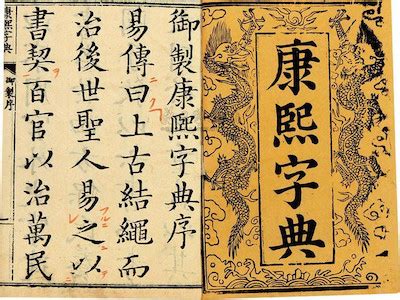 康熙字典
御製康熙字典序
易傳曰上古結繩而
治後世聖人易之以
書契百官以治萬民
康熙字典 御製序